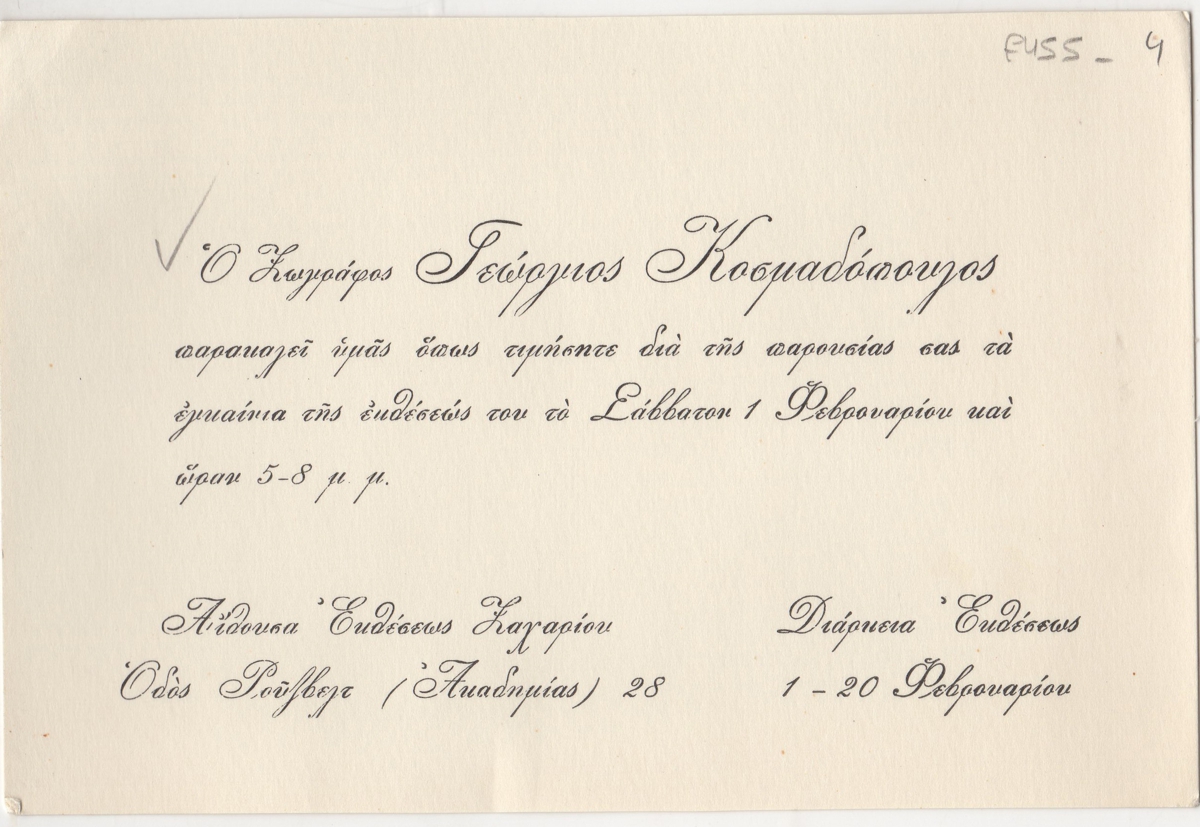 E455 - 4
Ὁ Ζωγράφος Γεώργιος Κοσμαδόπουλος
παρακαλεῖ ὑμᾶς ὅπως τιμήσητε διὰ τῆς παρουσίας σας τὰ
ἐγκαίνια τῆς ἐκθέσεώς του τὸ Σάββατον 1 Φεβρουαρίου καὶ
ὥραν 5-8 μ. μ.
Αἴθουσα Ἐκθέσεως Ζαχαρίου
Ὁδὸς Ροῦζβελτ (Ἀκαδημίας) 28
Διάρκεια Ἐκθέσεως
1 - 20 Φεβρουαρίου